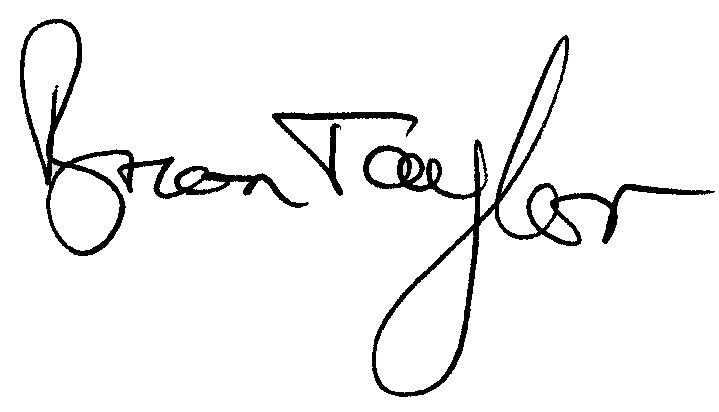 Brian Taylor